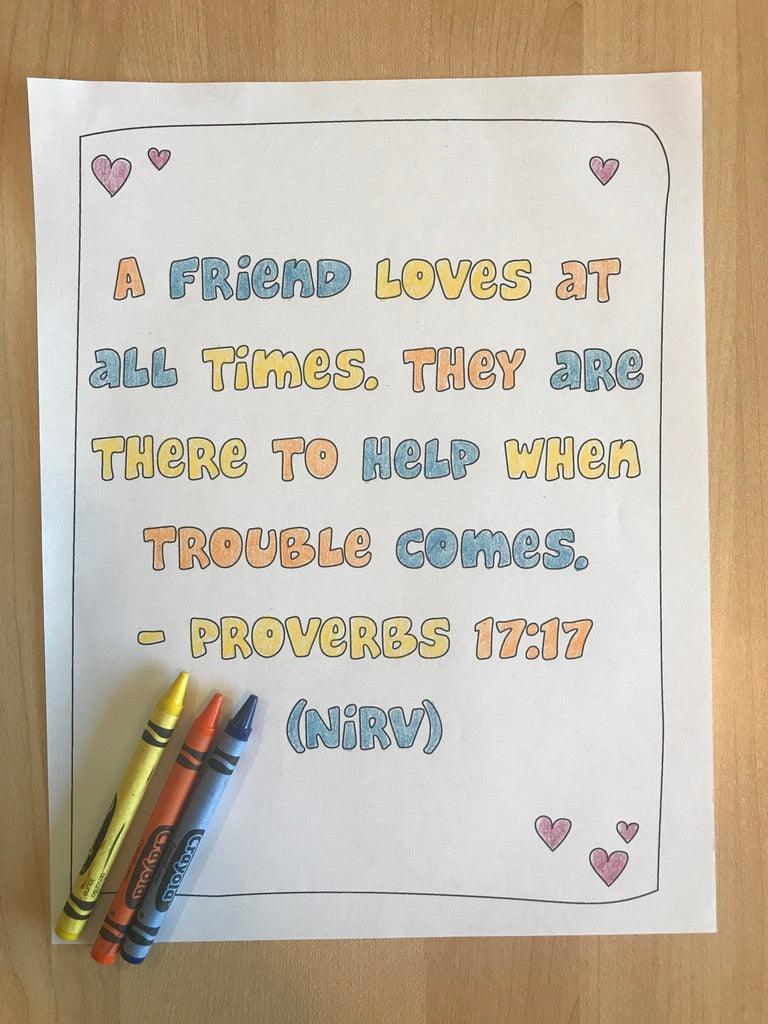 A FRIEND LOVES AT
ALL TIMES. THEY ARE
THERE TO HELP WHEN
TROUBLE COMES.
- PROVERBS 17:17
(NiRV)
Crayola
Crayola